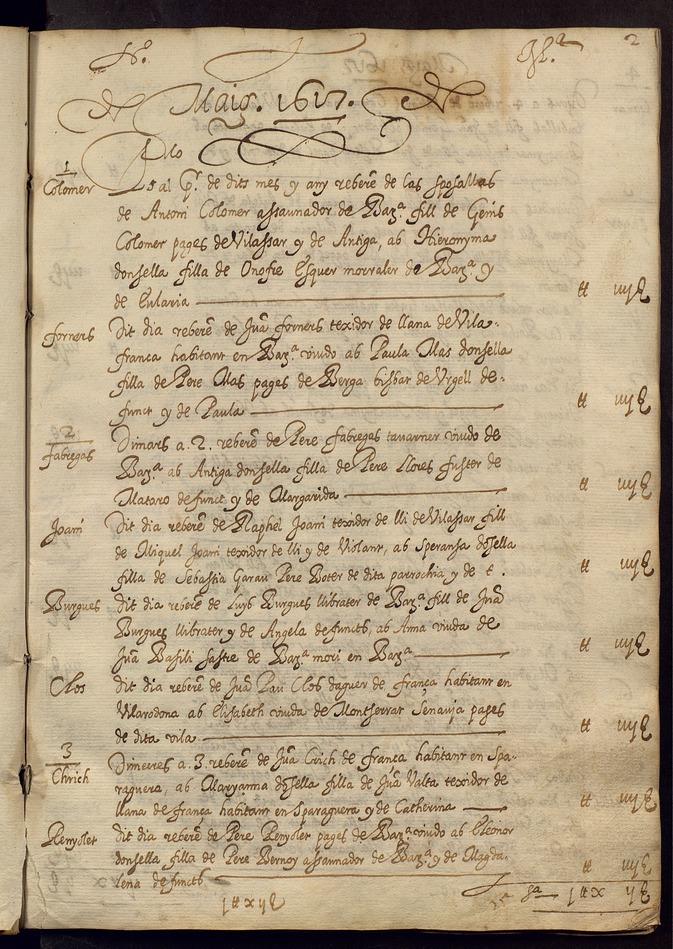 2
Maig. 1617.
1
Colomer
al p.r de dits mes y any reberẽ de las sposallas
de Antoni Colomer assaunador de Barᵃ. fill de Genis
Colomer pages de Vilassar y de Antiga, ab Hieronyma
donsella filla de Onofre Esquer morraler de Barᵃ. y
de Eularia
forners
Dit dia reberẽ de Juã forners texidor de llana de Vila-
franca habitant en Barᵃ. viudo ab Paula Mas donsella
filla de Pere Mas pages de Berga bisbat de Vrgell de-
funct y de Paula
2
fabregas
Dimars a. 2. reberẽ de Pere fabregas tauarner viudo de
Barᵃ. ab Antiga donsella filla de Pere Llores fuster de
Mataro defunct y de Margarida
Joani
Dit dia reberẽ de Raphel Joani texidor de lli de Vilassar fill
de Miquel Joani texidor de lli y de Violant, ab Speransa dõsella
filla de Sebastia Garau Pere Boter de dita parrochia y de t.
Burgues
dit dia reberẽ de Luys Burgues llibrater de Barᵃ fill de Juã
Burgues llibrater y de Angela defuncts, ab Anna viuda de
Juã Basili sastre de Barᵃ mori en Barᵃ
Clos
dit dia reberẽ de Juã Pau Clos daguer de frança habitant en
Vilarodona ab Elisabeth viuda de Montserrat Senauja pages
de dita vila
3
Chrich
Dimecres a. 3. reberẽ de Juã Crich de franca habitant en Spa-
raguera, ab Maryanna dõsella filla de Juã Valta texidor de
llana de frança habitant en Sparaguera y de Catherina
Penyolet
dit dia reberẽ de Pere Penyolet pages de Barᵃ viudo ab Eleonor
donsella filla de Pere Bernoy assaunador de Barᵃ y de Magda-
lena defuncts